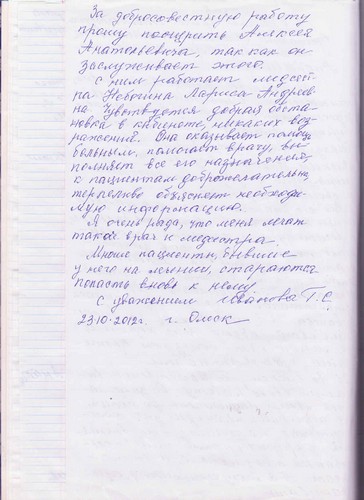 За добросовестную работу
прошу поощрить Алексея
Анатольевича, так как он
заслуживает этого.
С ним работает медсест
ра Лариса Андреев
на Чувствуется добрая обста
новка в кабинете, никаких воз
ражений. Она оказывает помощь
больным, помогает врачу, вы
полняет все его назначения,
к пациентам доброжелательна,
терпеливо объясняет необходи
мую информацию.
Я очень рада, что меня лечат
такой врач и медсестра.
Многие пациенты, бывшие
у него на лечении, стараются
попасть вновь к нему.
С уважением Иванова Т.С.
23.10.2012г. г. Омск